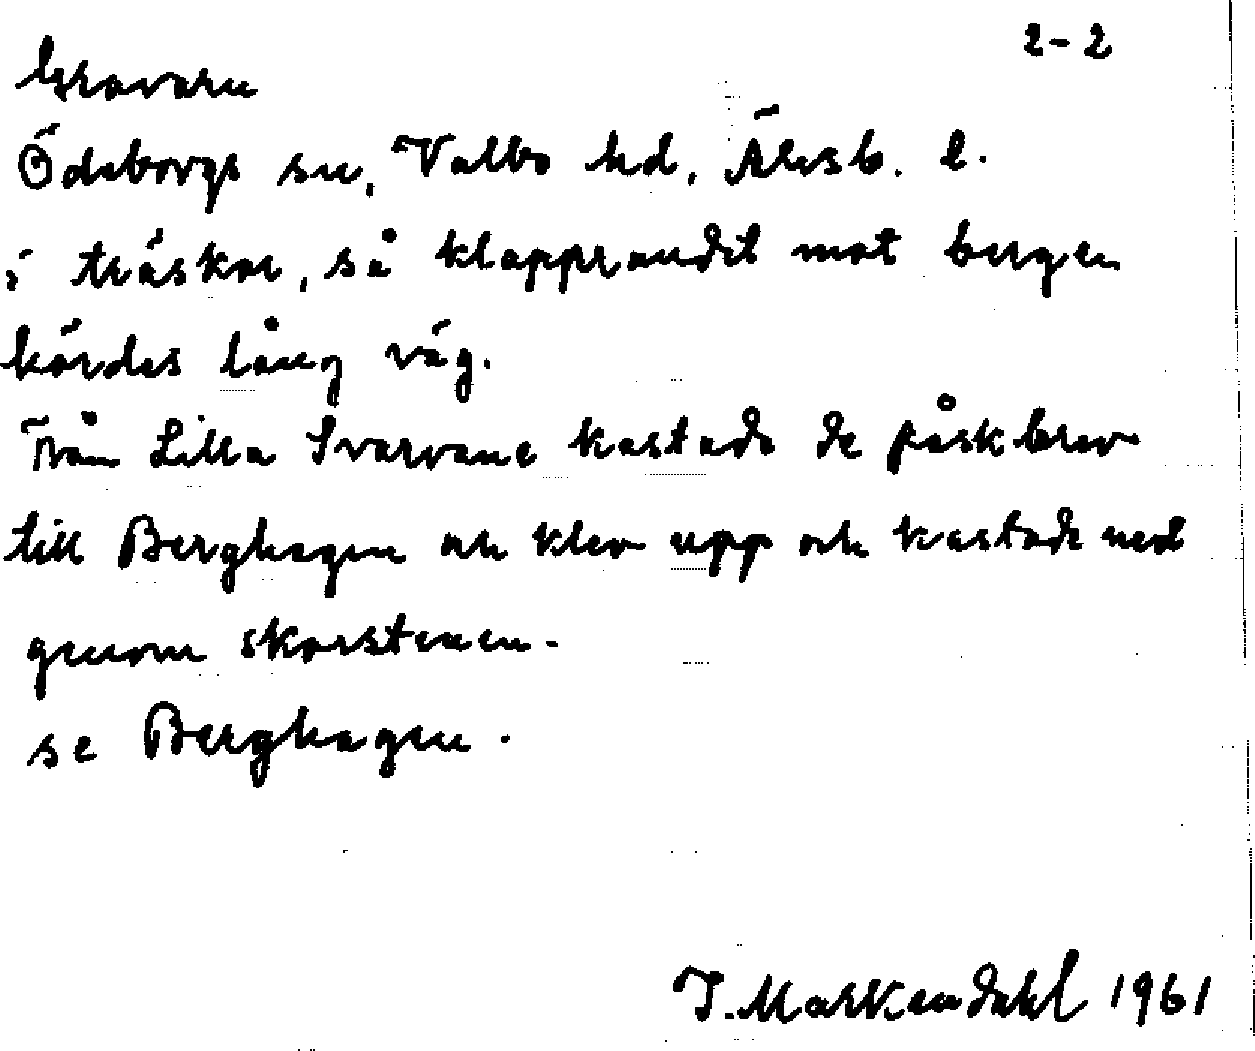 2-2
Gravarn
Ödeborgs sn, Valbo hd, Älvsb. l.
i träskor, så klapprandet mot bergen
hördes lång väg.
Från Lilla Svarvane kastade de påskbrev
till Berghagen och klev upp och kastade ned
genom skorstenen.
se Berghagen.
I. Markendahl 1961